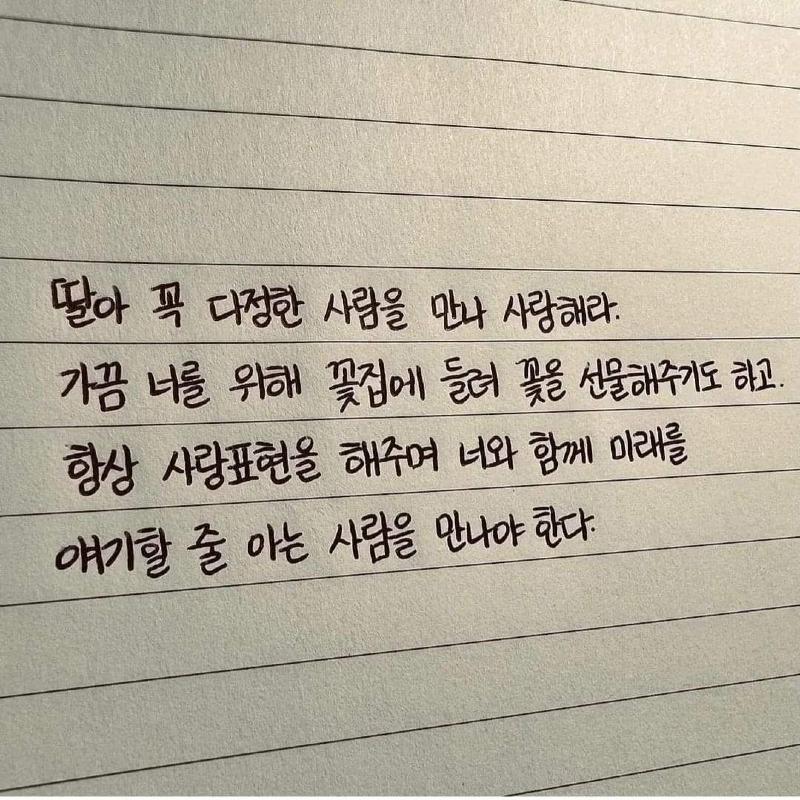 딸아 꼭 다정한 사람을 만나 사랑해라.
가끔 너를 위해 꽃집에 들려 꽃을 선물해주기도 하고.
항상 사랑표현을 해주며 너와 함께 미래를
얘기할 줄 아는 사람을 만나야 한다.